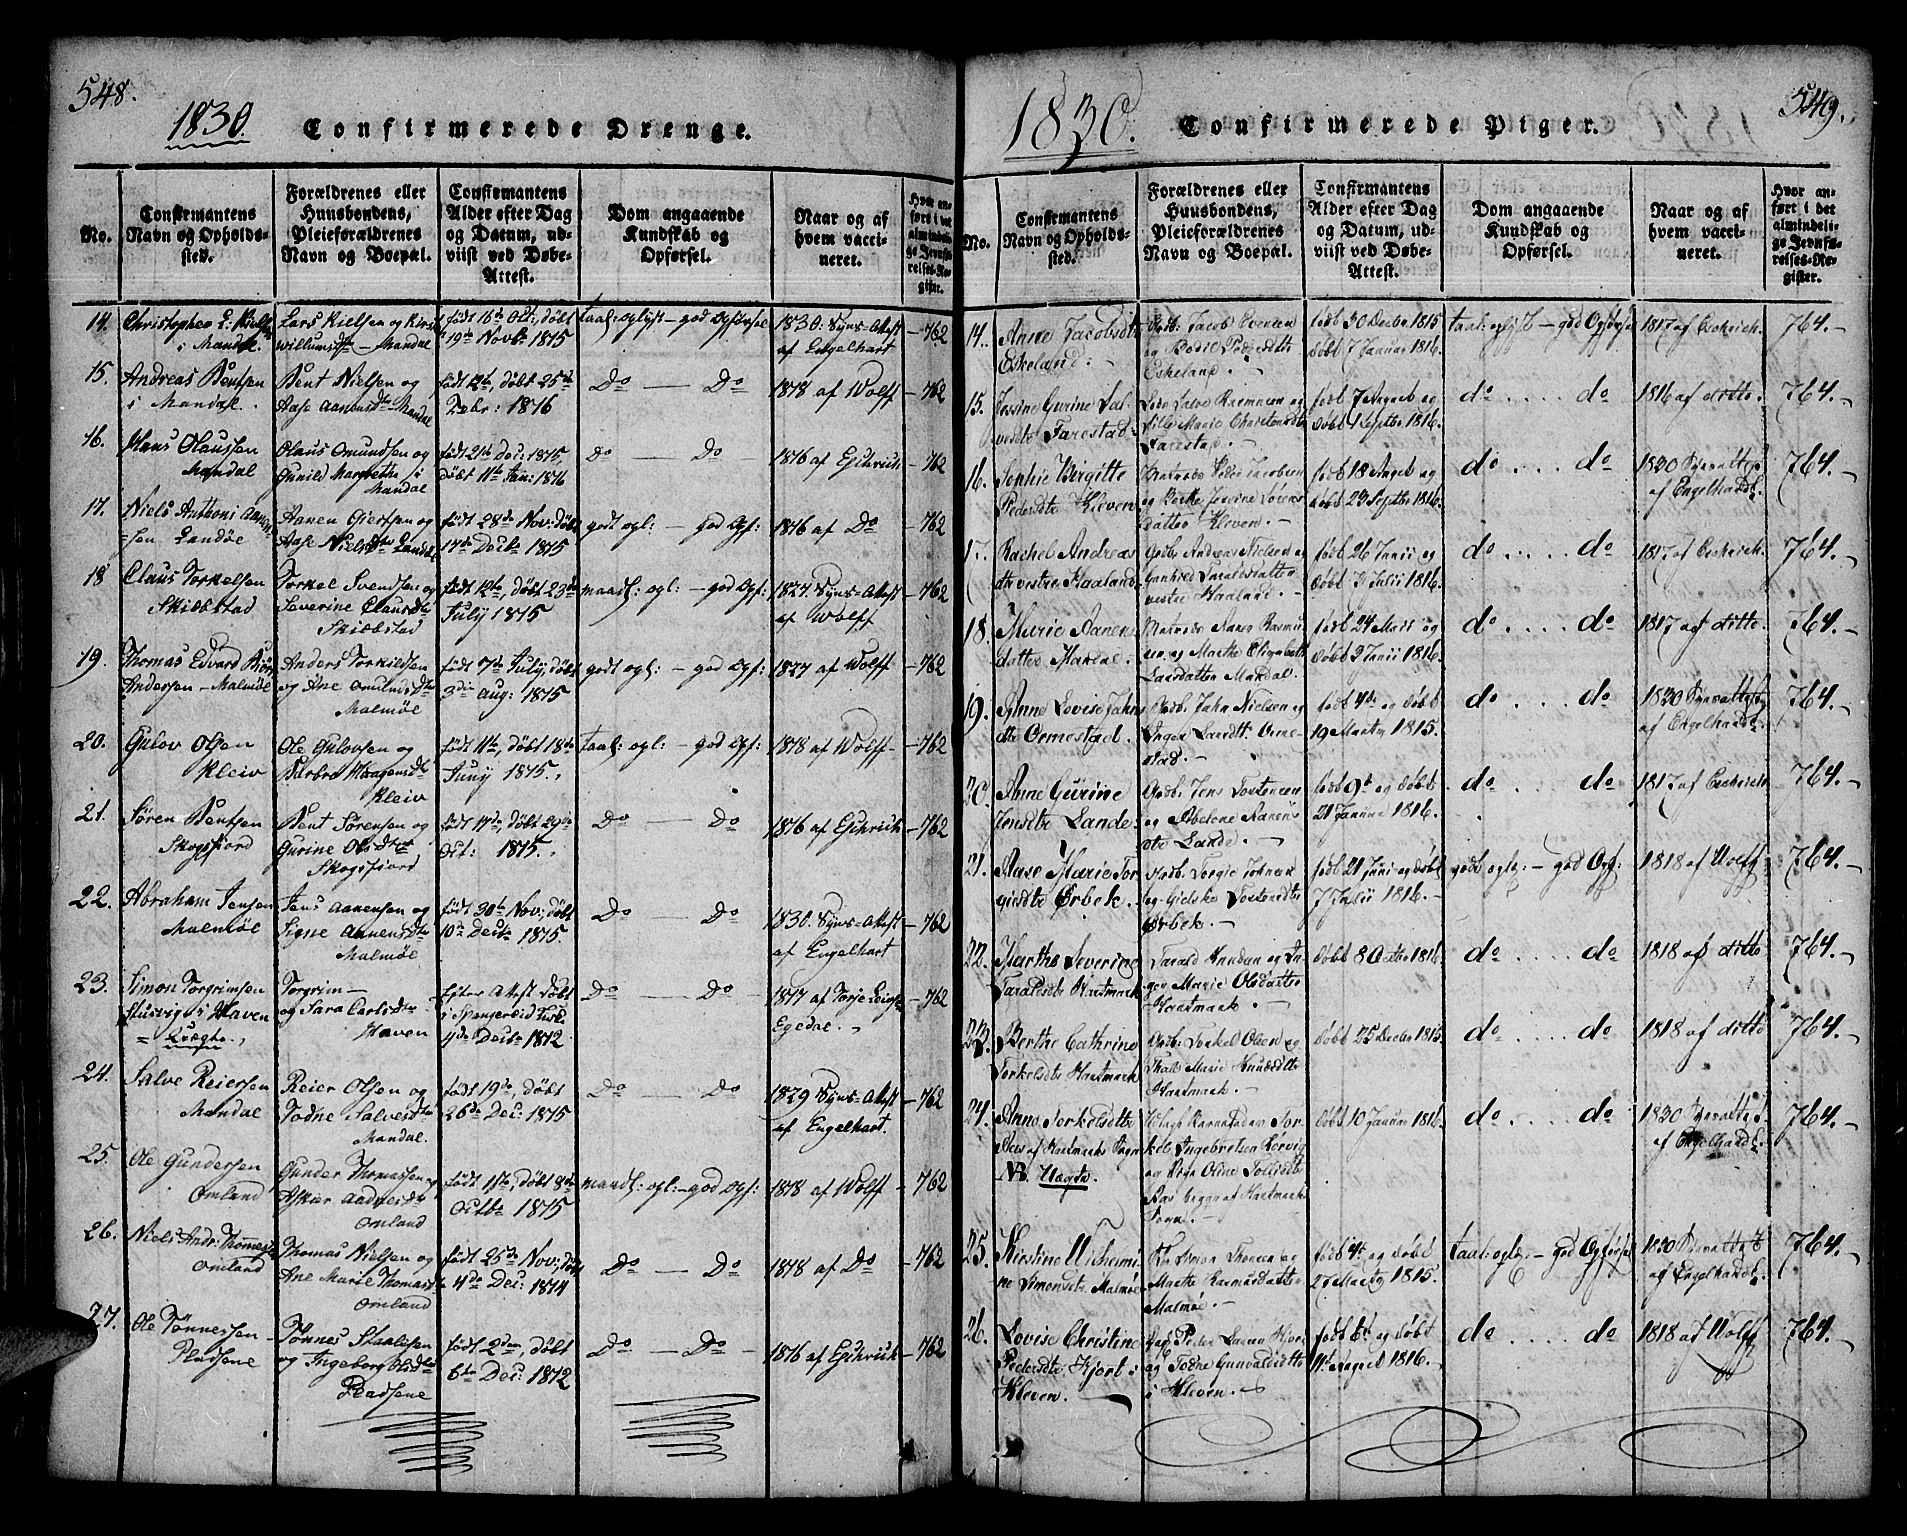 548.
1830.
Confirmerede Drenge.
No.
Confirmantens Navn og Opholds-sted.
Forældrenes eller Huusbondens, Pleieforældrenes Navn og Boepæl.
Confirmantens Alder efter Dag og Datum, ud-viist ved Døbe-Attest.
Dom angaaende Kundskab og Opførsel.
Naar og af hvem vacci-neret.
Hvor an-ført i det almindeli-ge Jevnfø-relses-Re-gister.
14. Christopher L: Kielsen
i Mandal.
Lars Kielsen og
Willumsdtr – Mandal
født 16de Oct:, døbt
19de Novb. 1815
taal: oplyst – god Opførsel
1830: Syns-Attest
af Engelhart
762
15. Andreas Bentsen
i Mandal.
Bent Nielsen og
Aase Aanensdtr Mandal
født 12te, døbt 25de
Febr: 1816
Do — Do
1818 af Wolff
762
16. Hans Olaussen
Mandal
Olaus Omundsen og
Gunild Margrethe i
Mandal
født 21te Dec: 1815
døbt 11te Jan: 1816
Do — Do
1816 af Eschrich
762
17. Niels Anthoni Aanen=
=sen Landøe
Aanen Giertsen og
Aase Nielsdtr Landøe
født 28de Nov: døbt
17de Decbr 1815
godt opl: – god Opf:
1816 af Do
762
18 Claus Torkelsen
Skiebstad
Torkel Svendsen og
Severine Clausdtr
Skiebstad
født 12te, døbt 23de
July 1815
maadl: opl: – god Opf:
1827. Syns-Attest
af Wolff
762
19. Thomas Edvard
Andersen – Malmøe
Anders Torkildsen
og Ane Omundsdtr
Malmøe
født 7de July, døbt
3die Aug: 1815
godt opl: – god Opf:
1827 af Wolff
762
20. Gulov Olsen
Kleiv
Ole Gulovsen og
Barbro Haagensdtr
Kleiv
født 11te, døbt 18de
Juny 1815.
taal: opl: – god Opf:
1818 af Wolff
762
21. Søren Bentsen
Skogsfiord
Bent Sørensen og
Gurine Olsdtr
Skogsfiord
født 17de, døbt 29de
Oct: 1815.
Do — Do
1816 af Eschrich
762
22. Abraham Jensen
Malmøe
Jens Aanensen og
Signe Aanensdtr
Malmøe
født 30te Nov:, døbt
10de Decbr 1815.
Do — Do
1830. Syns-Attest
af Engelhart
762
23. Simon Torgrimsen
i Haven
Torgrim —
og Sara Carlsdtr
Haven
Efter Attest døbt
i Spangereid Kirke
4de Decbr 1812
Do — Do
1817 af Torje
Egedal.
762
24. Salve Reiersen
Mandal
Reier Olsen og
Todne Salvesdtr
Mandal.
født 19de, døbt
26de Dec: 1815
Do — Do
1829 Syns-Attest
af Engelhart.
762
25. Ole Gundersen
Omland
Gunder Thomassen og
Aadnesdtr
Omland
født 1ste, døbt 8de
Octbr 1815
maadl: opl: – god Opf:
1818 af Wolff
762
26. Niels Andr: Thomassen
Omland
Thomas Nielsen og
Ane Marie Thomasdtr
Omland
født 25de Nov: døbt
4de Dec: 1814
Do — Do
1818 af Do
762
27. Ole Tønnessen
Pladsene
Tønnes Staalesen
og Ingeborg Olsdtr
Pladsene
født 2den, døbt
6te Dec: 1812
Do — Do
1816 af Eschrich
762
549.
1830.
Confirmerede Piger.
No.
Confirmantens Navn og Opholds-sted.
Forældrenes eller Huusbondens, Pleieforældrenes Navn og Boepæl.
Confirmantens Alder efter Dag og Datum, ud-viist ved Døbe-Attest.
Dom angaaende Kundskab og Opførsel.
Naar og af hvem vacci-neret.
Hvor an-ført i det almindeli-ge Jevnfø-relses-Re-gister.
14. Anne Jacobsdtr
Eskeland.
Gdb: Jacob Evensen
og Bodil Pedersdtr
Eskeland.
født 30 Decbr 1815
døbt 7 Januar 1816.
taal: oplyst – god Opførsel
1817 af Eschrich.
764.
15. Gurine Sal-
vesdtr Farestad.
Salve Rasmusen og
Marie Christensdtr
Farestad.
født 7 August og
døbt 1 Septbr 1816.
do .... do
1816 af ditto.
764.
16. Sophie Birgitte
Pedersdtr Kleven.
Peder Jacobsen
Kleven.
født 18 August og
døbt 23 Septbr 1816.
do .... do
1830 Synsattest
af Engelhardt.
764.
17. Rachel Andreas
dtr vestre Haaland
Gdbr Andreas Nielsen og
Gunhild Taraldsdatter
vestre Haaland.
født 26 Junii og
døbt 7 Julii 1816.
do .... do
1817 af Eschrich.
764.
18. Marie Aanens
datter Mandal.
Matros Aanen Rasmus
sen og Marthe Elisabeth
Larsdatter Mandal.
født 24 Mai og
døbt 3 Junii 1816.
do .... do
1817 af ditto.
764.
19. Anne Lovise Jahns
dtr Ormestad.
Gdb. Jahn Nielsen og
Inger Larsdtr Orme-
stad.
født 4de og døbt
19 Marty 1815.
do .... do
1830 Synsattest
af Engelhardt.
764.
20. Anne Gurine
Jensdtr Lande.
Gdb. Jens Tostensen
og Abelone Aanens
dtr Lande.
født 9de og døbt
21 Januar 1816.
do .... do
1817 af Eschrich
764.
21. Aase Marie Tor
giesdtr Ørbek.
Gdb. Torgie
og Tostensdtr
Ørbek.
født 21 Juni og døbt
7 Julii 1816.
godt oplt: – god Opf:
1818 af Wolff
764.
22. Marthe Severine
Taraldsdtr Haatmark
Tarald og In
ger Marie Olsdatter
Haatmark.
døbt 8 Octbr 1816
do .... do
1818 af ditto
764.
23. Berthe Cathrine
Torkelsdtr Haatmark
Gdb: Torkel Olsen og
Marie Knudsdtr
Haatmark.
døbt 25 Decbr 1815
do .... do
1818 af ditto
764.
24. Anne Torkelsdtr
Aas af Haatmarks Sogn
NB. Uægte.
Tor
kel Ingebretsen
og Pige Oline
Aas begge af Haatmarks
Sogn.
døbt 10 Januar 1816.
do .... do
1830 Synsattest
af Engelhardt.
764.
25. Kirstine Wilhelmi
ne Simonsdtr Malmøe
Simon Tronsen og
Marthe Rasmusdatter
Malmøe.
født 4de og døbt
27 Marty 1815.
taal: oplt. – god Opførsel
1830 Synsattest
af Engelhardt.
764.
26. Lovise Christine
Pedersdtr Hjort i
Kleven.
Peder Larsen Hjort
og Todne Gunvaldsdtr
i Kleven.
født 6te og døbt
11te August 1816.
do .... do
1818 af Wolff
764.